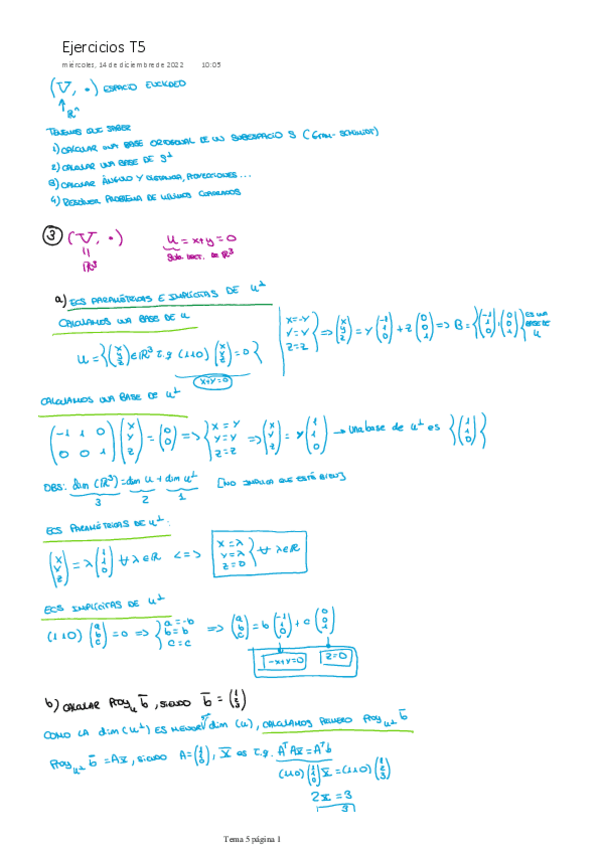 Ejercicios T5
miércoles, 14 de diciembre de 2022 10:05
(V, •) ESPACIO EUCLÍDEO
↑
ℝⁿ
TENEMOS QUE SABER
1) CALCULAR UNA BASE ORTOGONAL DE UN SUBESPACIO S (GRAM-SCHMIDT)
2) CALCULAR UNA BASE DE S⊥
3) CALCULAR ÁNGULO Y DISTANCIA, PROYECCIONES...
4) RESOLVER PROBLEMA DE MÍNIMOS CUADRADOS
③ (V, •) U = x+y=0
ℝ³ Sub. vect. de ℝ³
a) ECS PARAMÉTRICAS E IMPLÍCITAS DE U⊥
CALCULAMOS UNA BASE DE U
U = {(x y z) ∈ ℝ³ T.q (1 1 0) (x y z) = 0} x=-y y=y z=z => (x y z) = y (-1 1 0) + z (0 0 1) => B = {(-1 1 0), (0 0 1)} ES UNA BASE DE U
x+y=0
CALCULAMOS UNA BASE DE U⊥
(-1 1 0 / 0 0 1) (x y z) = (0 0) => {x=y y=y z=z => (x y z) = y (1 1 0) → Una base de U⊥ es {(1 1 0)}
OBS: dim (ℝ³) = dim U + dim U⊥ [NO IMPLICA QUE ESTÉ BIEN]
3 2 1
ECS PARAMÉTRICAS DE U⊥:
(x y z) = λ (1 1 0) ∀ λ ∈ ℝ <=> x=λ y=λ z=0 } ∀ λ ∈ ℝ
ECS IMPLÍCITAS DE U⊥
(1 1 0) (a b c) = 0 => {a=-b b=b c=c => (a b c) = b (-1 1 0) + c (0 0 1)
-x+y=0 z=0
b) CALCULAR Proy_U b̄, SIENDO b̄ = (1 2 3)
COMO LA dim(U⊥) ES MENOR dim (U), CALCULAMOS PRIMERO Proy_U⊥ b̄
Proy_U⊥ b̄ = Ax̄, SIENDO A = (1 1 0), x̄ es T.q. AᵀAx̄ = Aᵀb
(1 1 0) (1 1 0) x̄ = (1 1 0) (1 2 3)
2x̄ = 3
Tema 5 página 1